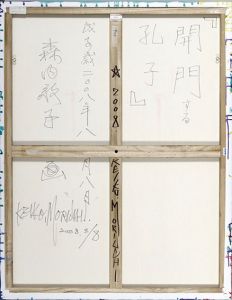 開門する
孔子』
☆ 2008
戊子歳二〇〇八年八
月八日
森内敬子
画
KEIKO MORIUCHI
KEIKO MORIUCHI.
2008. 8/8